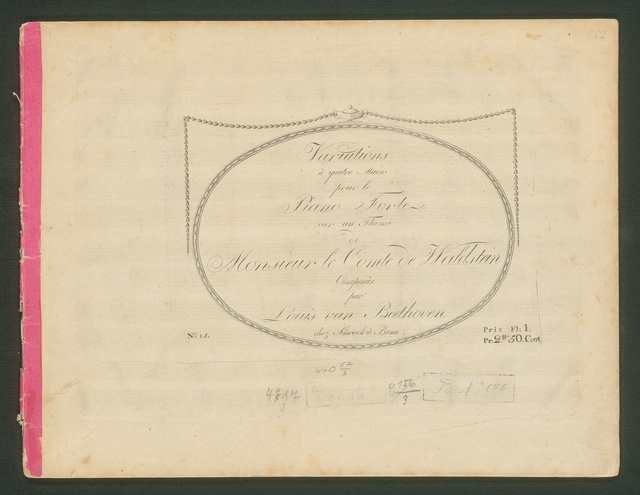 167
Variations
à quatre Mains
pour le
Piano Forte
sur un Theme
de
Monsieur le Comte de Waldstein
Composés
par
Louis van Beethoven
chez Simrock à Bonn.
Nº 15.
Prix Fl: 1.
Pr. 2 50. Cent
WoO 67
4797
156
3
B. Nº 175